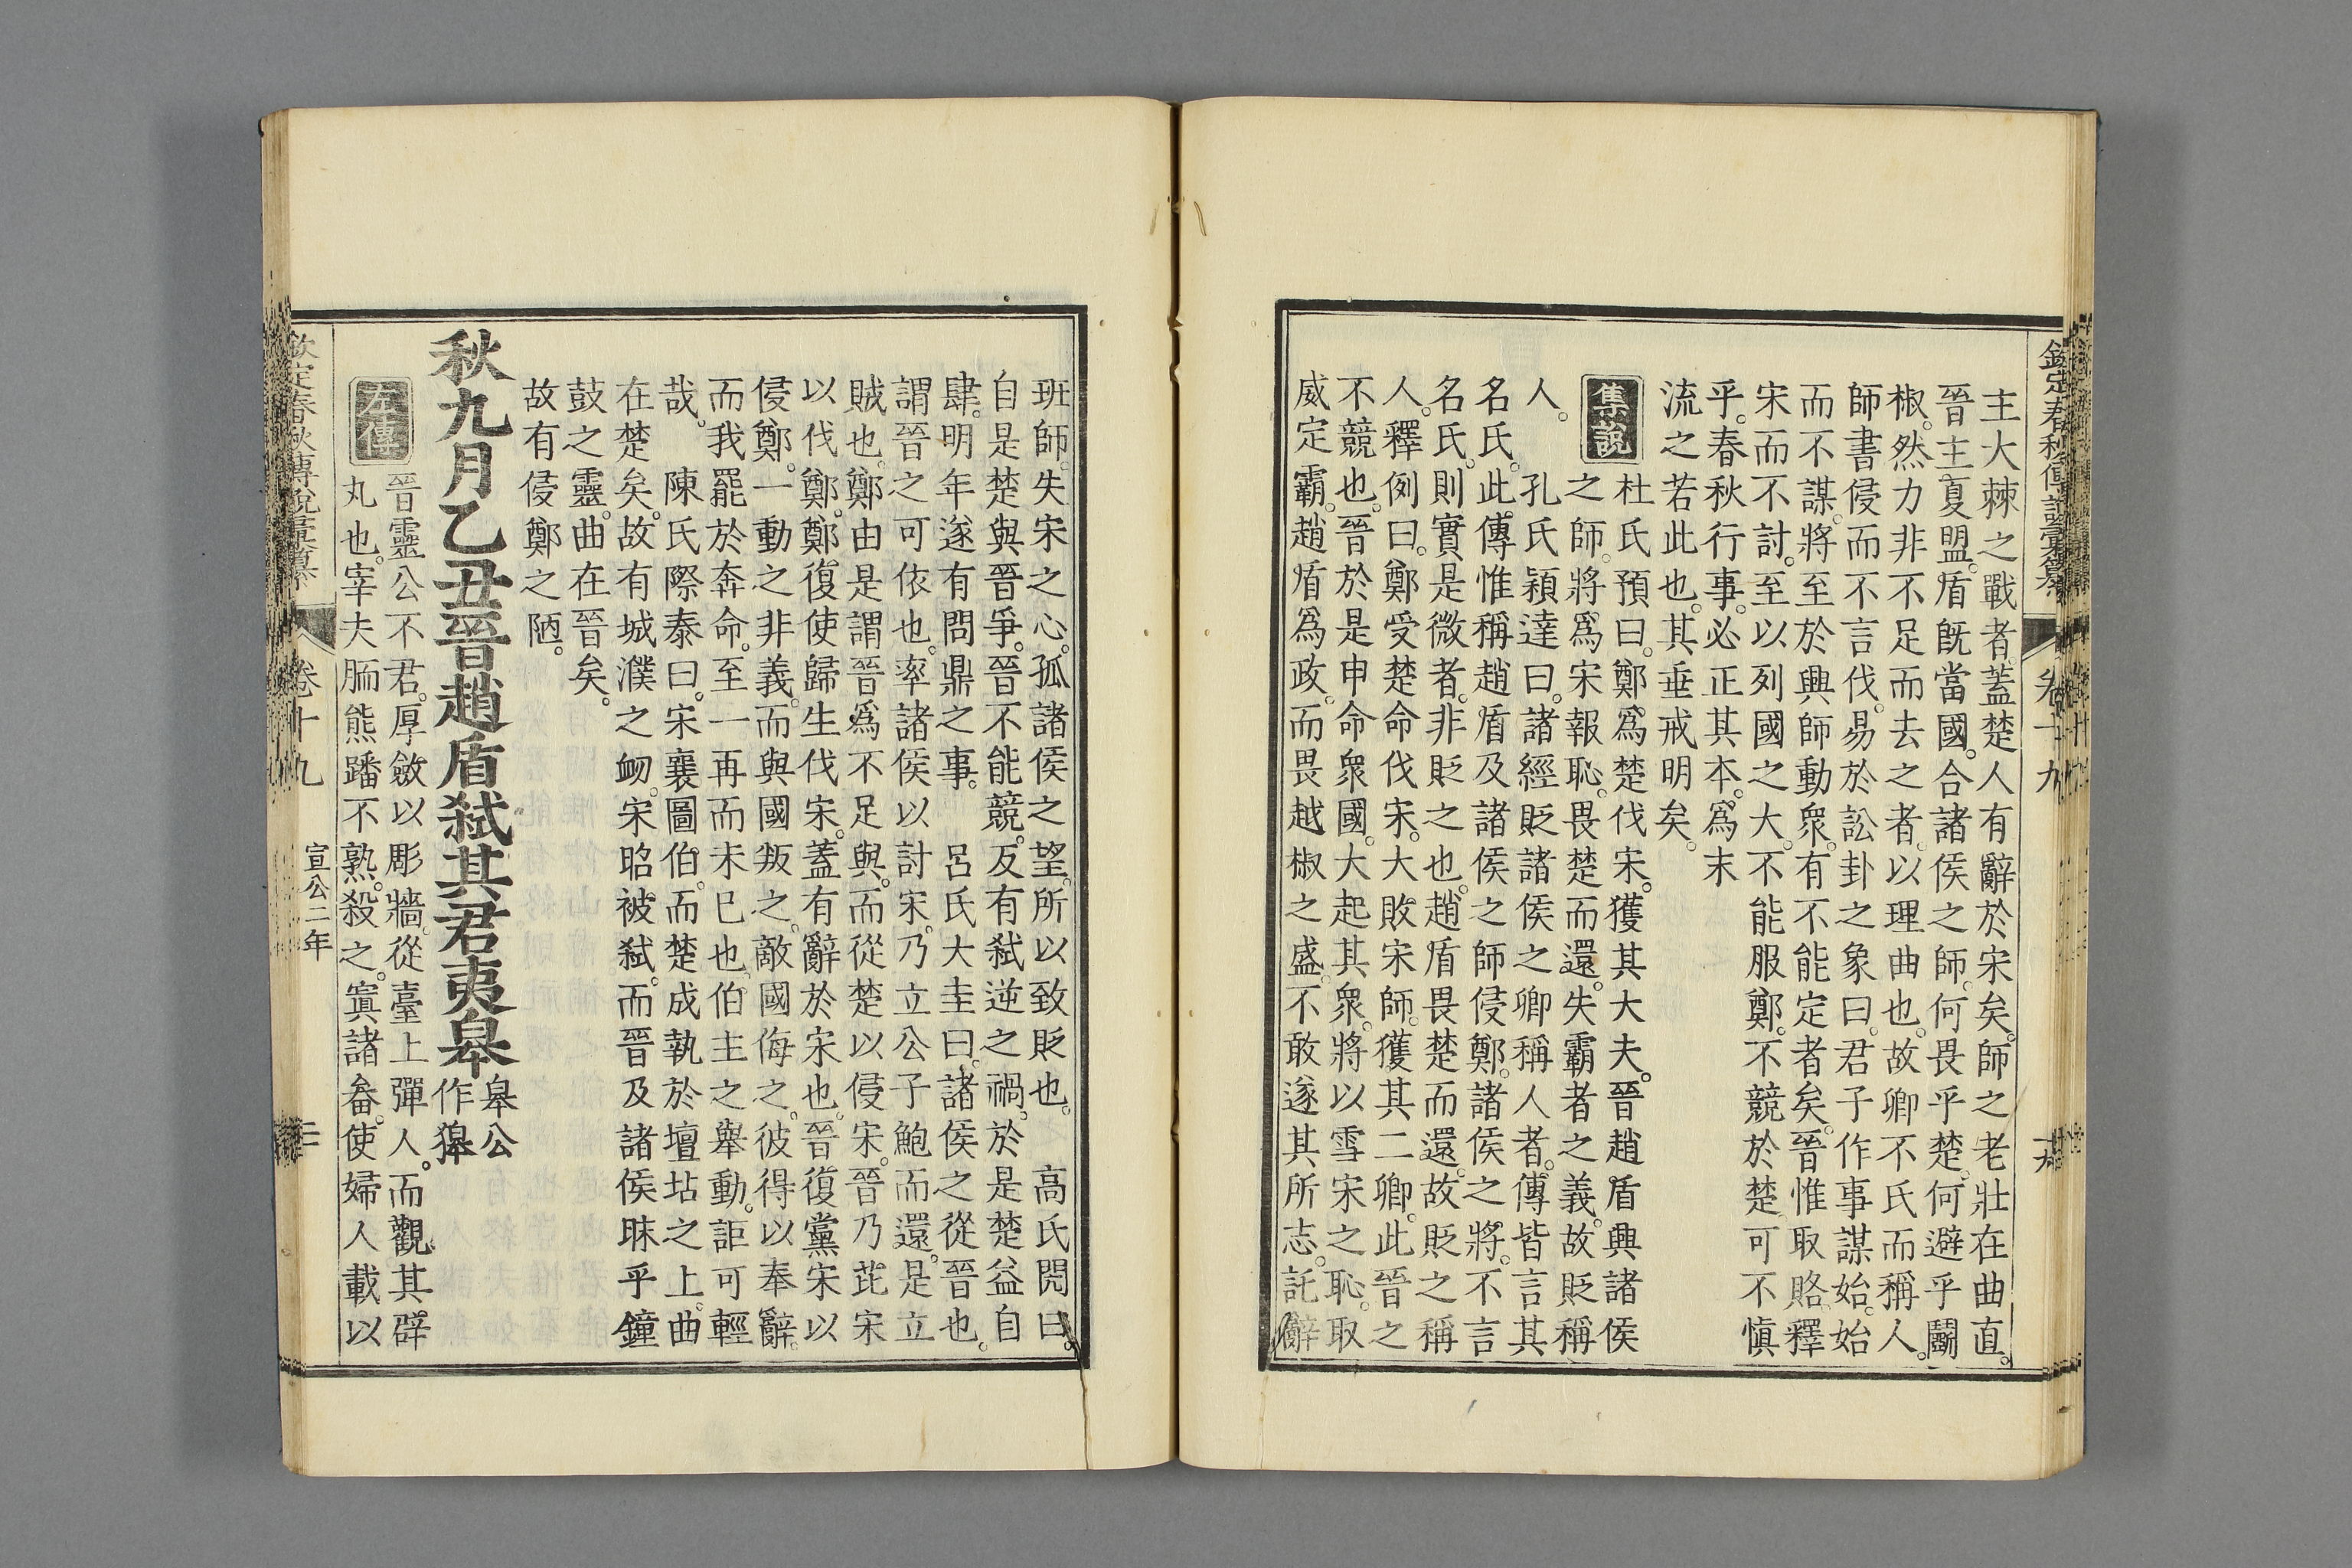 欽定春秋傳說彙纂 卷十九
主大棘之戰者蓋楚人有辭於宋矣師之老壯在曲直。
晉主夏盟。盾旣當國。合諸侯之師。何畏乎楚。何避乎鬭
椒。然力非不足而去之者。以理曲也。故卿不氏而稱人。
師書侵而不言伐。易於訟卦之象曰。君子作事謀始。始
而不謀。將至於興師動衆。有不能定者矣。晉惟取賂。釋
宋而不討。至以列國之大。不能服鄭。不競於楚。可不愼
乎。春秋行事。必正其本。爲末
流之若此也。其垂戒明矣。
集說
杜氏預曰。鄭爲楚伐宋。獲其大夫。晉趙盾興諸侯
之師。將爲宋報恥。畏楚而還。失霸者之義。故貶稱
人。 孔氏穎達曰。諸經貶諸侯之卿稱人者。傳皆言其
名氏。此傳惟稱趙盾及諸侯之師侵鄭。諸侯之將。不言
名氏。則實是微者。非貶之也。趙盾畏楚而還。故貶之稱
人。釋例曰。鄭受楚命伐宋。大敗宋師。獲其二卿。此晉之
不競也。晉於是申命衆國。大起其衆。將以雪宋之恥。取
威定霸。趙盾爲政。而畏越椒之盛。不敢遂其所志。託辭
班師。失宋之心。孤諸侯之望。所以致貶也。 高氏閌曰。
自是楚與晉爭。晉不能競。反有弑逆之禍。於是楚益自
肆。明年遂有問鼎之事。 呂氏大圭曰。諸侯之從晉也。
謂晉之可依也。率諸侯以討宋。乃立公子鮑而還。是立
賊也。鄭由是謂晉爲不足與。而從楚以侵宋。晉乃芘宋
以伐鄭。鄭復使歸生伐宋。蓋有辭於宋也。晉復黨宋以
侵鄭。一動之非義。而與國叛之。敵國侮之。彼得以奉辭。
而我罷於奔命。至一再而未已也。伯主之舉動。詎可輕
哉。 陳氏際泰曰。宋襄圖伯。而楚成執於壇坫之上。曲
在楚矣。故有城濮之衂。宋昭被弑。而晉及諸侯昧乎鐘
鼓之靈。曲在晉矣。
故有侵鄭之陋。
秋九月乙丑晉趙盾弑其君夷皐
皐公
作獋
左傳
晉靈公不君。厚斂以彫牆。從臺上彈人。而觀其辟
丸也。宰夫胹熊蹯不熟。殺之。寘諸畚。使婦人載以
欽定春秋傳說彙纂 卷十九 宣公二年